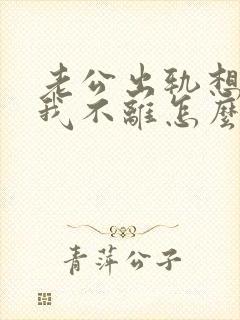 老公出轨想
我不離怎麼
青萍公子